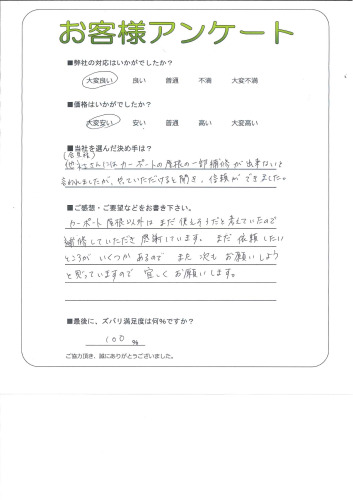 お客様アンケート
■弊社の対応はいかがでしたか?
大変良い 良い 普通 不満 大変不満
■価格はいかがでしたか?
大変安い 安い 普通 高い 大変高い
■当社を選んだ決め手は?
他社さんにはカーポートの屋根の一部補修が出来ないと
言われましたが、やっていただけると聞き、信頼ができました。
■ご感想・ご要望などをお書き下さい。
カーポート屋根以外はまだ使えそうだと考えていたので
補修していただき感謝しています。まだ依頼したい
ところがいくつかあるので また 次も お願いしよう
と思っていますので 宜しくお願いします。
■最後に、ズバリ満足度は何%ですか?
100 %
ご協力頂き、誠にありがとうございました。